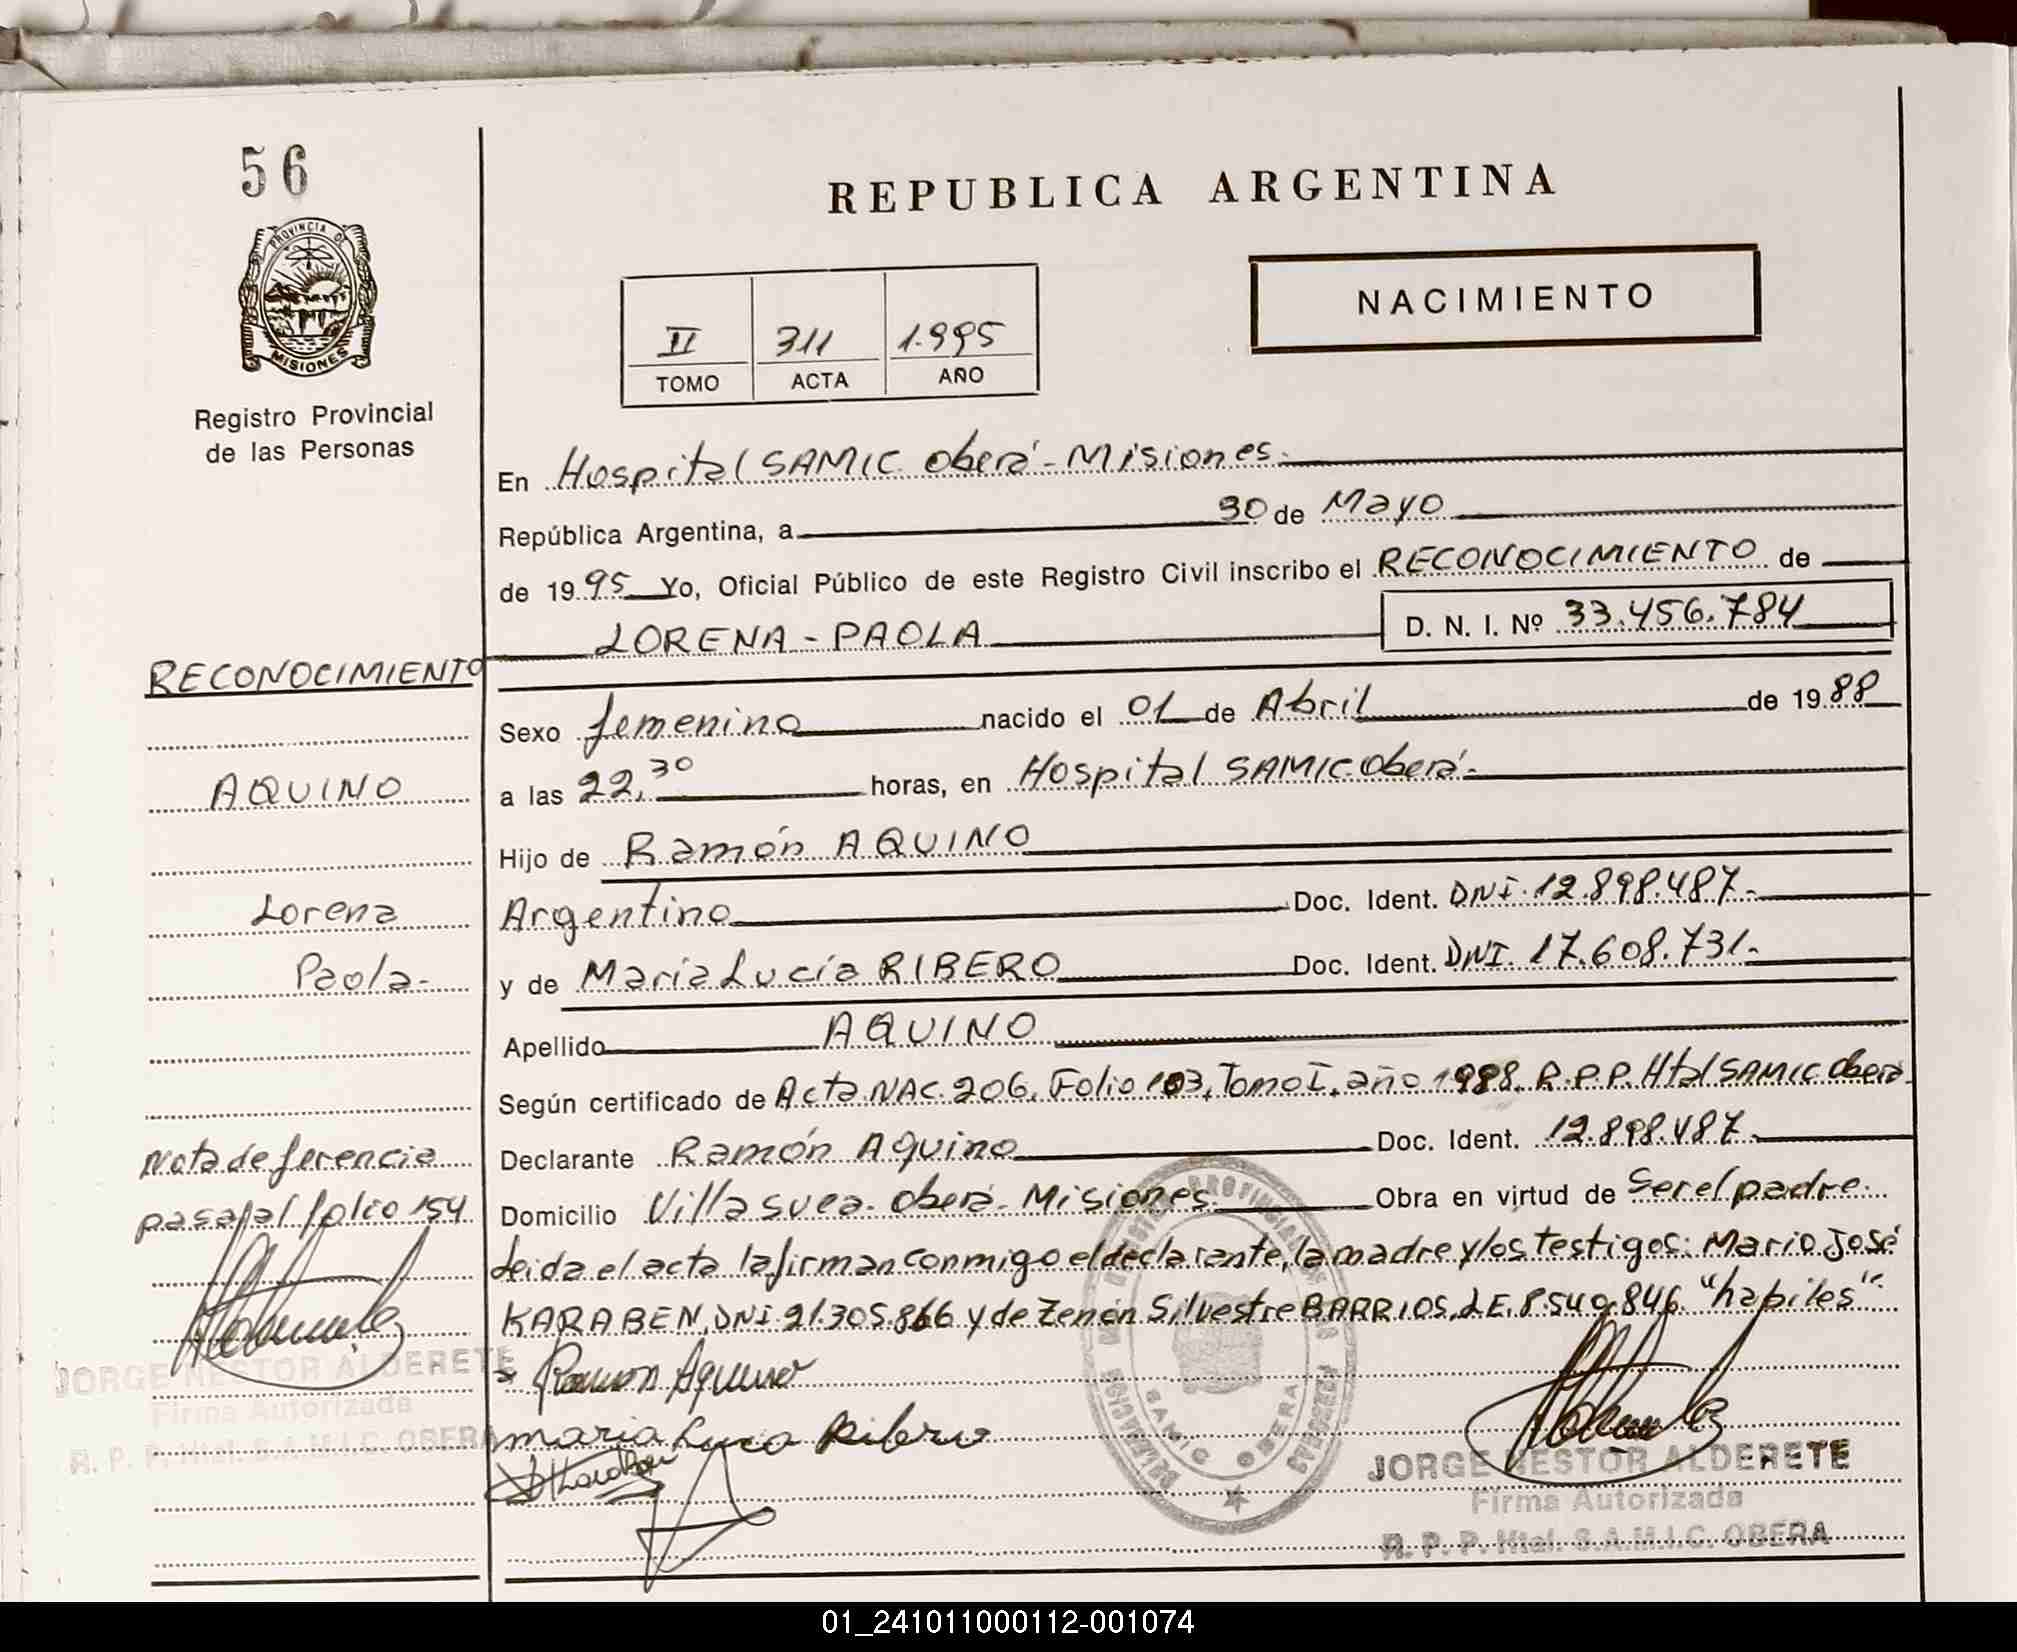 56
PROVINCIA DE
MISIONES
Registro Provincial
de las Personas
REPUBLICA ARGENTINA
NACIMIENTO
II 311 1.995
TOMO ACTA AÑO
En Hospital SAMIC. Oberá - Misiones.
República Argentina, a 30 de Mayo
de 1995 Yo, Oficial Público de este Registro Civil inscribo el RECONOCIMIENTO de
LORENA - PAOLA D. N. I. Nº 33.456.784
RECONOCIMIENTO
Sexo femenino nacido el 01 de Abril de 1988
AQUINO
a las 22,30 horas, en Hospital SAMIC Oberá-
Hijo de Ramón AQUINO
Lorena
Argentino Doc. Ident. DNI. 12.898.487.-
Paola-
y de María Lucía RIBERO Doc. Ident. DNI. 17.608.731.-
Apellido AQUINO
Según certificado de Acta NAC. 206, Folio 103, Tomo I, año 1988. R.P.P. Htal SAMIC Oberá-
Nota de ferencia
Declarante Ramón Aquino Doc. Ident. 12.898.487.-
pasa al folio 154
Domicilio Villa Svea. Oberá - Misiones. Obra en virtud de Ser el padre.
Leida el acta la firman conmigo el declarante, la madre y los testigos: Mario José
KARABEN, DNI. 21.305.866 y de Zenón Silvestre BARRIOS, LE. 8.549.846. "habiles".
Ramon Aquino
maria Luca Ribero
JORGE NESTOR ALDERETE
Firma Autorizada
R. P. P. Htal. S.A.M.I.C. OBERA
SAMIC OBERA
JORGE NESTOR ALDERETE
Firma Autorizada
R. P. P. Htal. S.A.M.I.C. OBERA
01_241011000112-001074